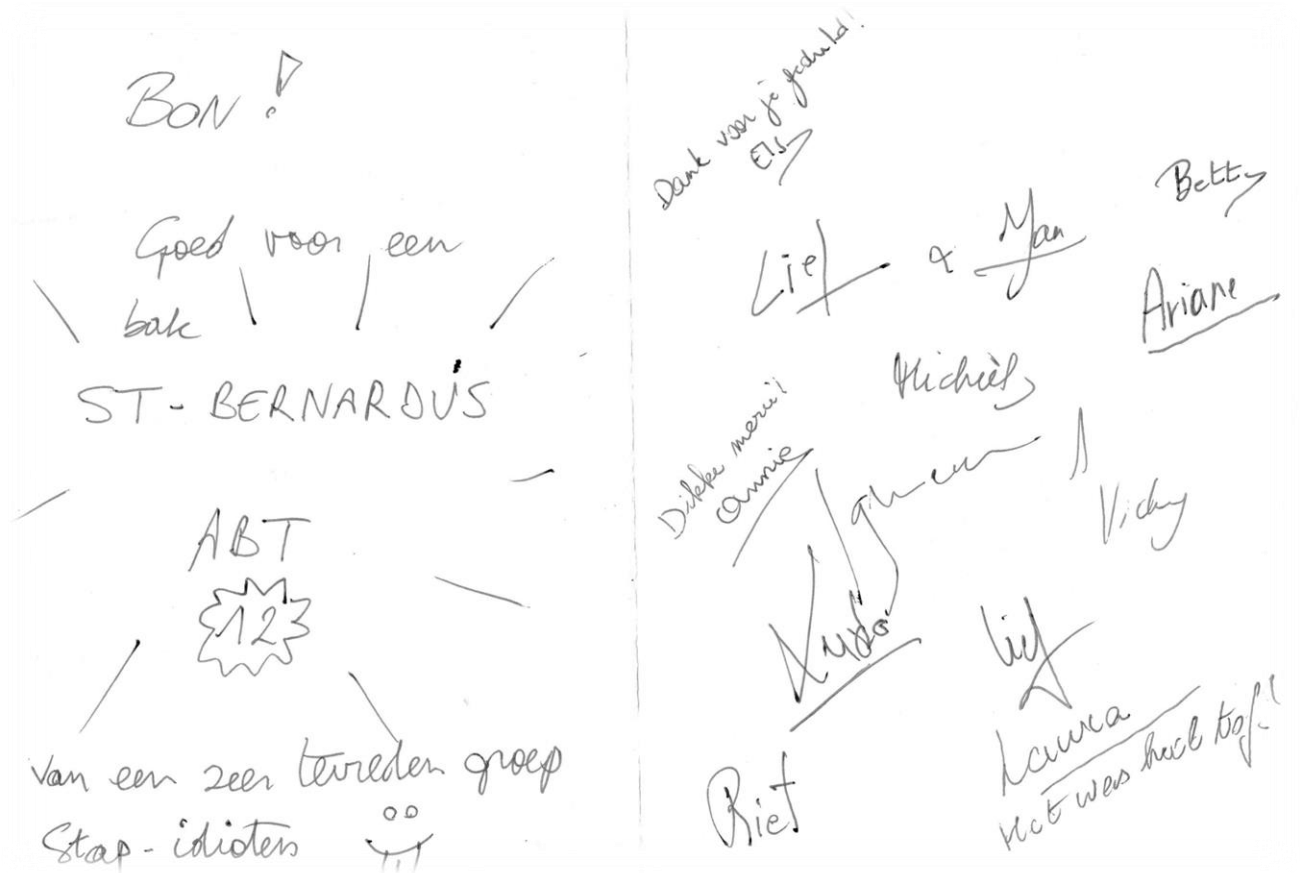 BON!
Goed voor een
bak
ST-BERNARDUS
ABT
12
van een zeer tevreden groep
Stap-idioten
Dank voor je geduld!
Els
Betty
Lief & Jan
Ariane
Michiels
Dikke merci!
Annie
Vicky
Ludo
Lief
Laura
Het was heel tof!
Riet